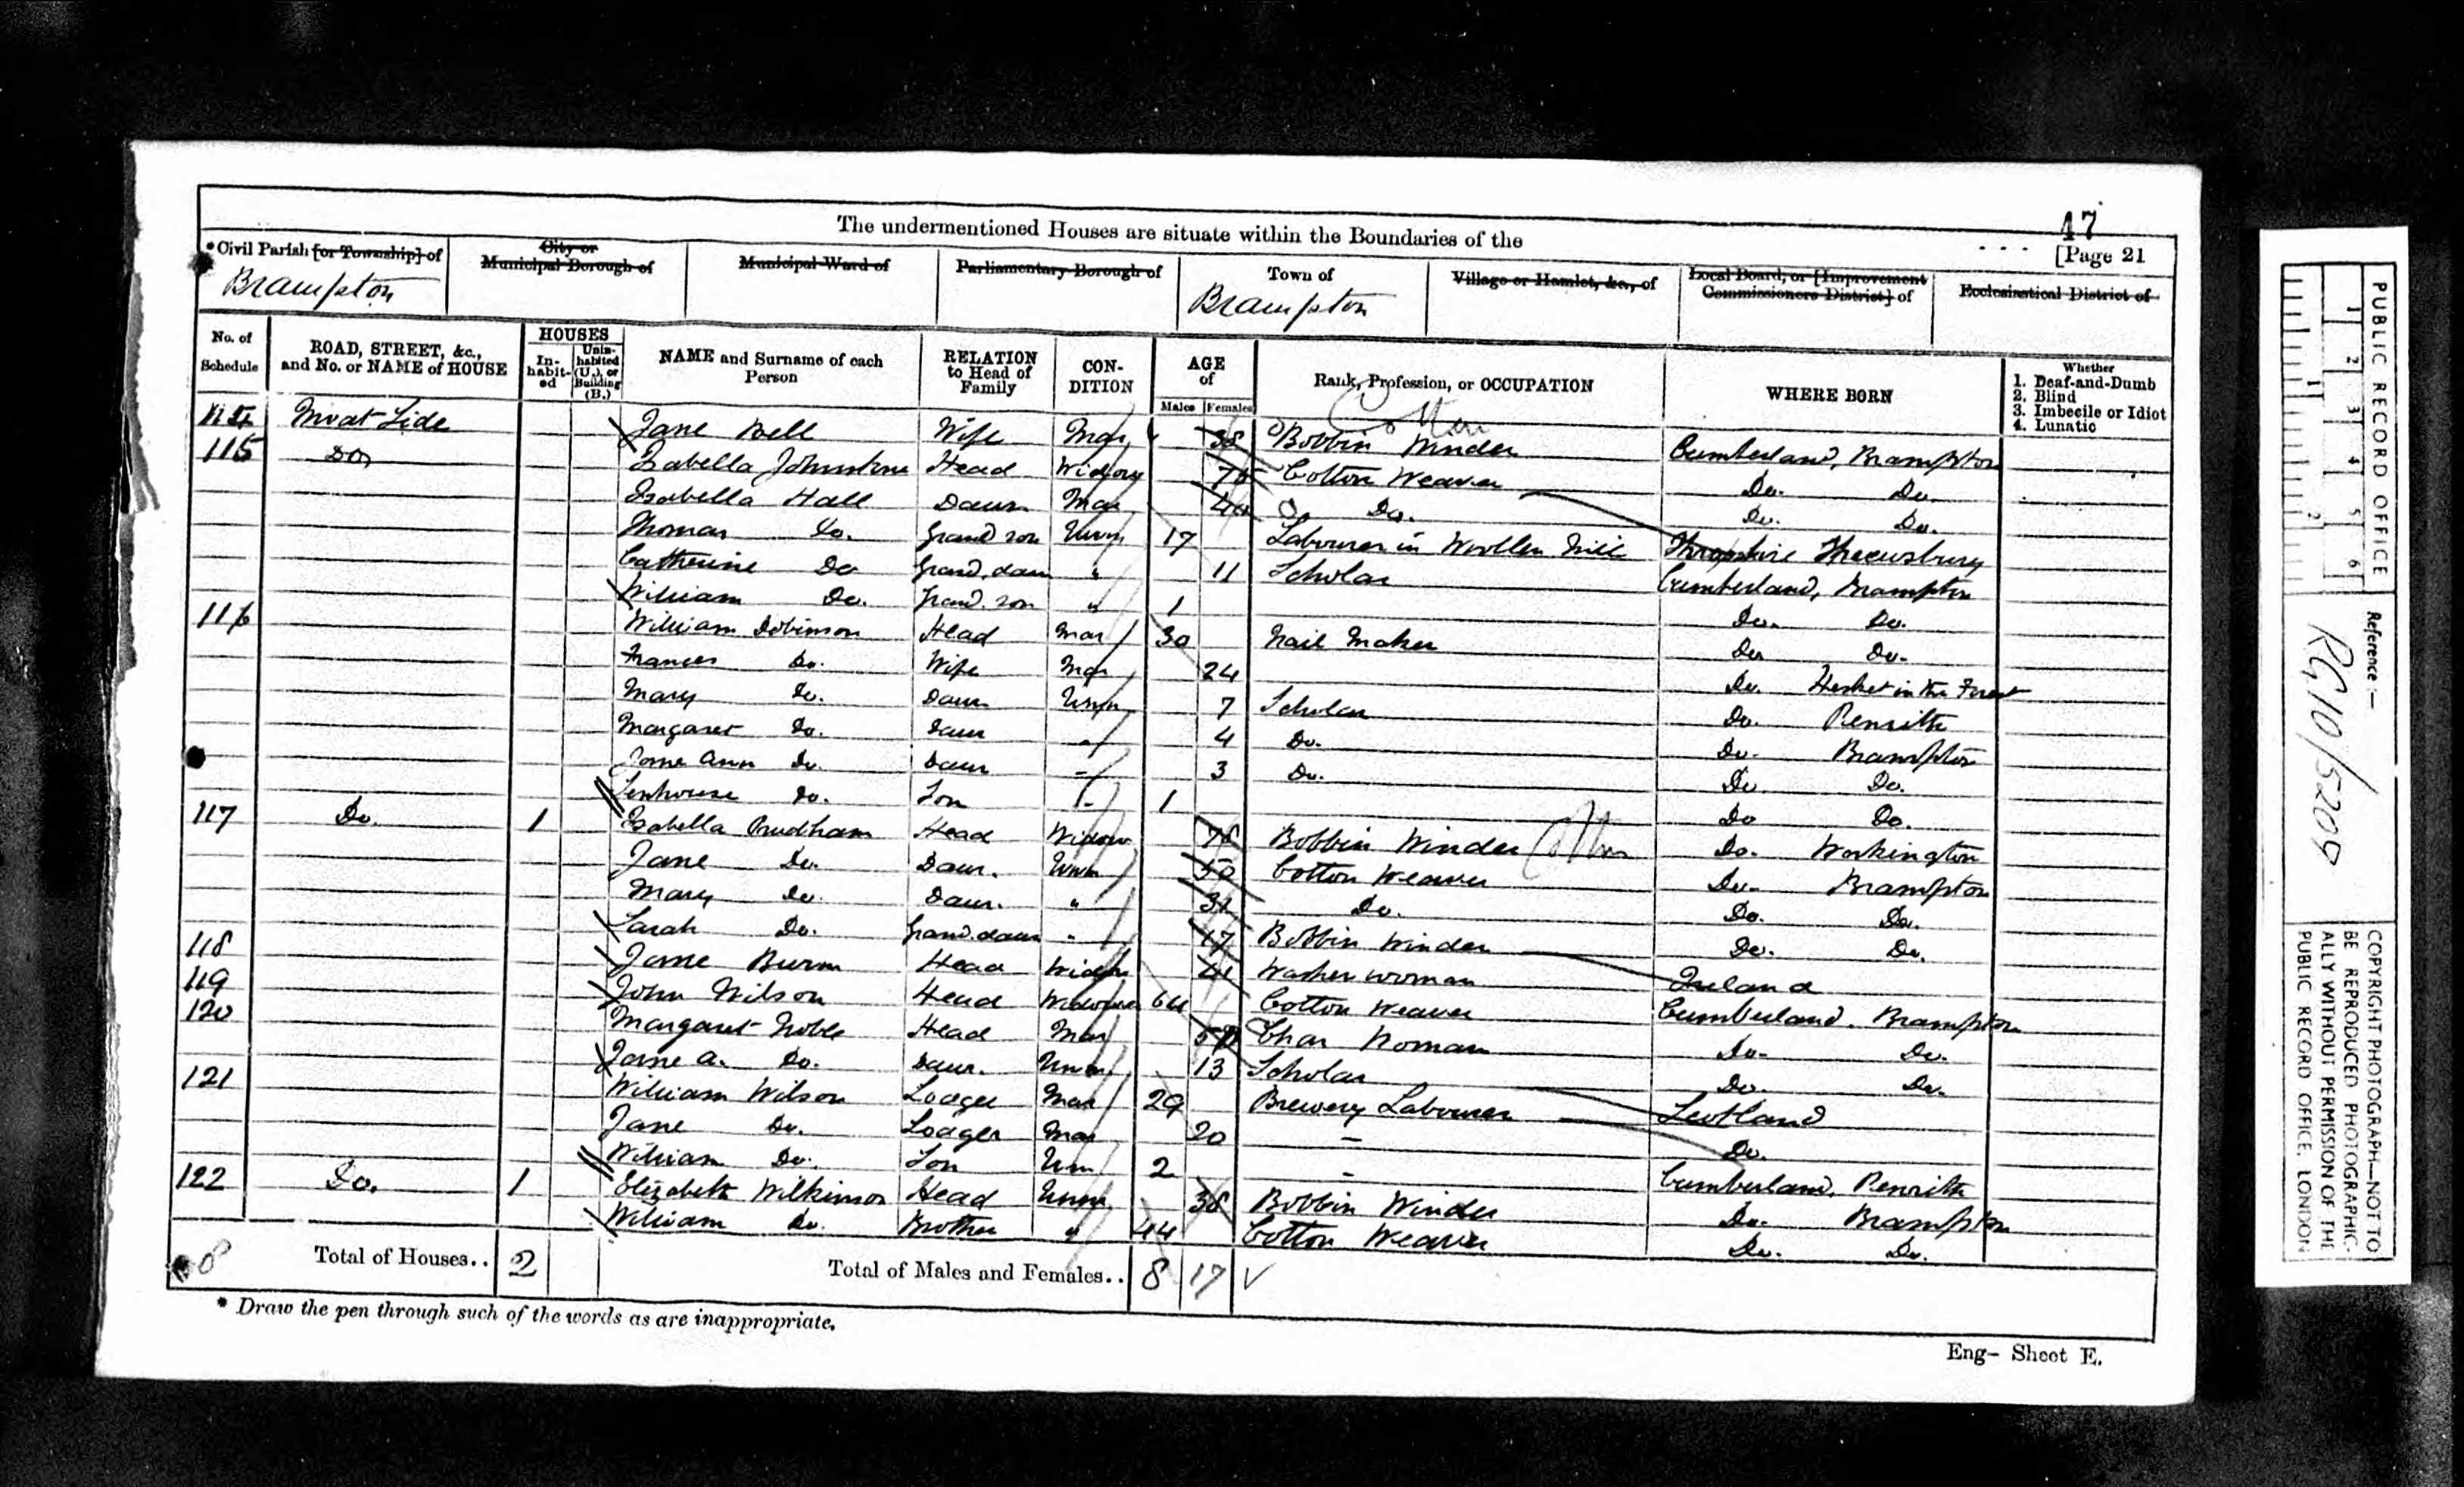 The undermentioned Houses are situate within the Boundaries of the
47
[Page 21
*Civil Parish [or Township] of
Brampton
City or Municipal Borough of
Municipal Ward of
Parliamentary Borough of
Town of
Brampton
Village or Hamlet, &c., of
Local Board, or [Improvement Commissioners District] of
Ecclesiastical District of
No. of Schedule
ROAD, STREET, &c., and No. or NAME of HOUSE
HOUSES
Inhabited
Uninhabited (U.), or Building (B.)
NAME and Surname of each Person
RELATION to Head of Family
CONDITION
AGE of
Males Females
Rank, Profession, or OCCUPATION
WHERE BORN
Whether
1. Deaf-and-Dumb
2. Blind
3. Imbecile or Idiot
4. Lunatic
114 Moat Side Jane Bell Wife Mar 38 Bobbin Winder Cumberland, Brampton
115 Do Isabella Johnstone Head Widow Cotton Weaver Do. Do.
Isabella Hall Daur. Mar Do. Do. Do.
Thomas Do. Grand son Unm 17 Labourer in Woollen Mill Shropshire Shrewsbury
Catherine Do Grand. daur " 11 Scholar Cumberland, Brampton
William Do. Grand. son " 1 Do. Do.
116 William Dobinson Head Mar 30 Nail Maker Do Do.
Frances Do. Wife Mar 24 Do. Hesket in the Forest
Mary Do. Daur Unm 7 Scholar Do. Penrith
Margaret Do. Daur " 4 Do. Do. Brampton
Jane Ann Do. Daur 3 Do. Do. Do.
Senhouse Do. Son 1 Do Do.
117 Do. 1 Isabella Prudham Head Widow 78 Bobbin Winder Do. Workington
Jane Do. Daur. Unm 50 Cotton Weaver Do. Brampton
Mary Do. Daur. " Do. Do. Do.
Sarah Do. Grand. daur " 17 Bobbin Winder Do. Do.
118 Jane Burn Head Widow Washer woman Ireland
119 John Wilson Head Widower 64 Cotton Weaver Cumberland. Brampton
120 Margaret Noble Head Mar Char Woman Do. Do.
Jane A. Do. Daur. Unm 13 Scholar Do. Do.
121 William Wilson Lodger Mar 29 Brewery Labourer Scotland
Jane Do. Lodger Mar 20 — Do.
William Do. Son Un 2 — Cumberland, Penrith
122 Do. 1 Elizabeth Wilkinson Head Unm 38 Bobbin Winder Do. Brampton
William Do. Brother " 44 Cotton Weaver Do. Do.
8 Total of Houses.. 2 Total of Males and Females.. 8 17
* Draw the pen through such of the words as are inappropriate.
Eng- Sheet E.
PUBLIC RECORD OFFICE
1 2 3 4 5 6
1 2
Reference :-
RG10/5209
COPYRIGHT PHOTOGRAPH—NOT TO
BE REPRODUCED PHOTOGRAPHIC-
ALLY WITHOUT PERMISSION OF THE
PUBLIC RECORD OFFICE, LONDON